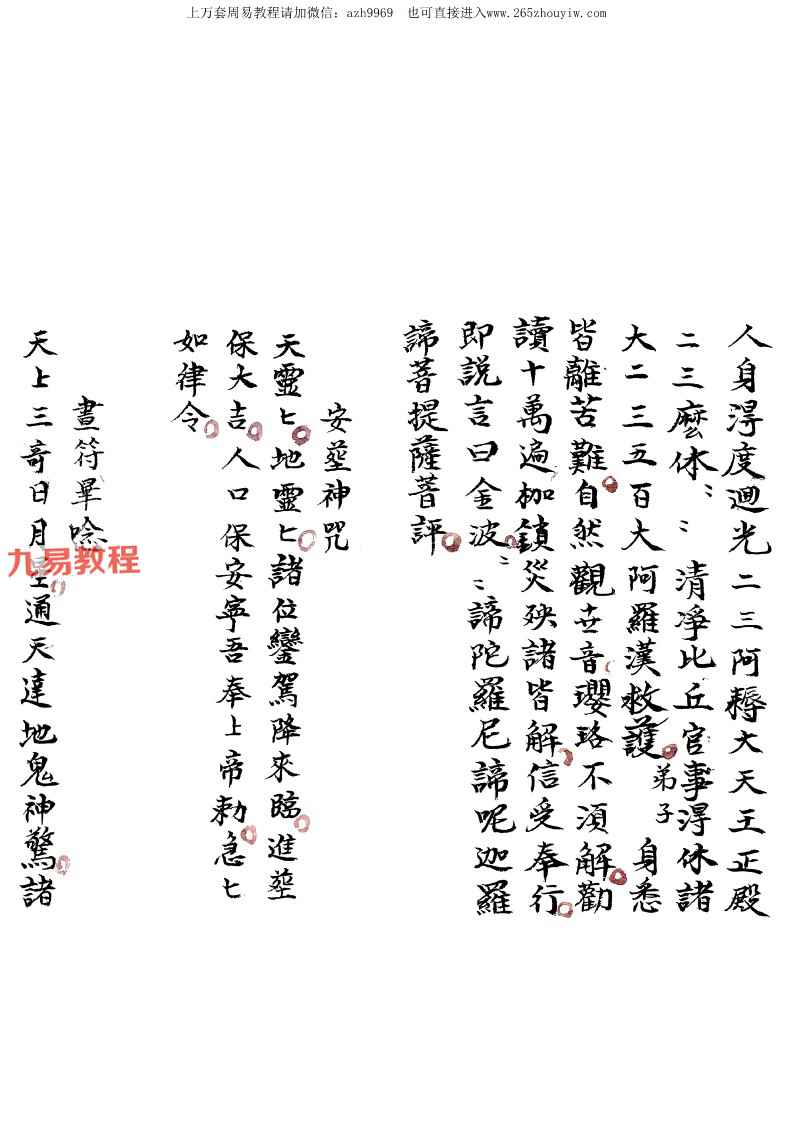 上万套周易教程请加微信：azh9969　也可直接进入www.265zhouyiw.com
人身淂度廻光二三阿耨大天王正殿
二三麽休〻〻清凈比丘官事淂休諸
大二三五百大阿羅漢救護弟子身悉
皆離苦難自然觀世音瓔珞不湏解勸
讀十萬遍枷鎖災殃諸皆解信受奉行
即説言曰金波〻〻諦陀羅尼諦呢迦羅
諦菩提薩菩評
安塟神咒
天靈匕地靈匕諸位鑾駕降來臨進塟
保大吉人口保安寧吾奉上帝勅急匕
如律令
晝符畢唸
天上三奇日月星通天達地鬼神驚諸
九易教程